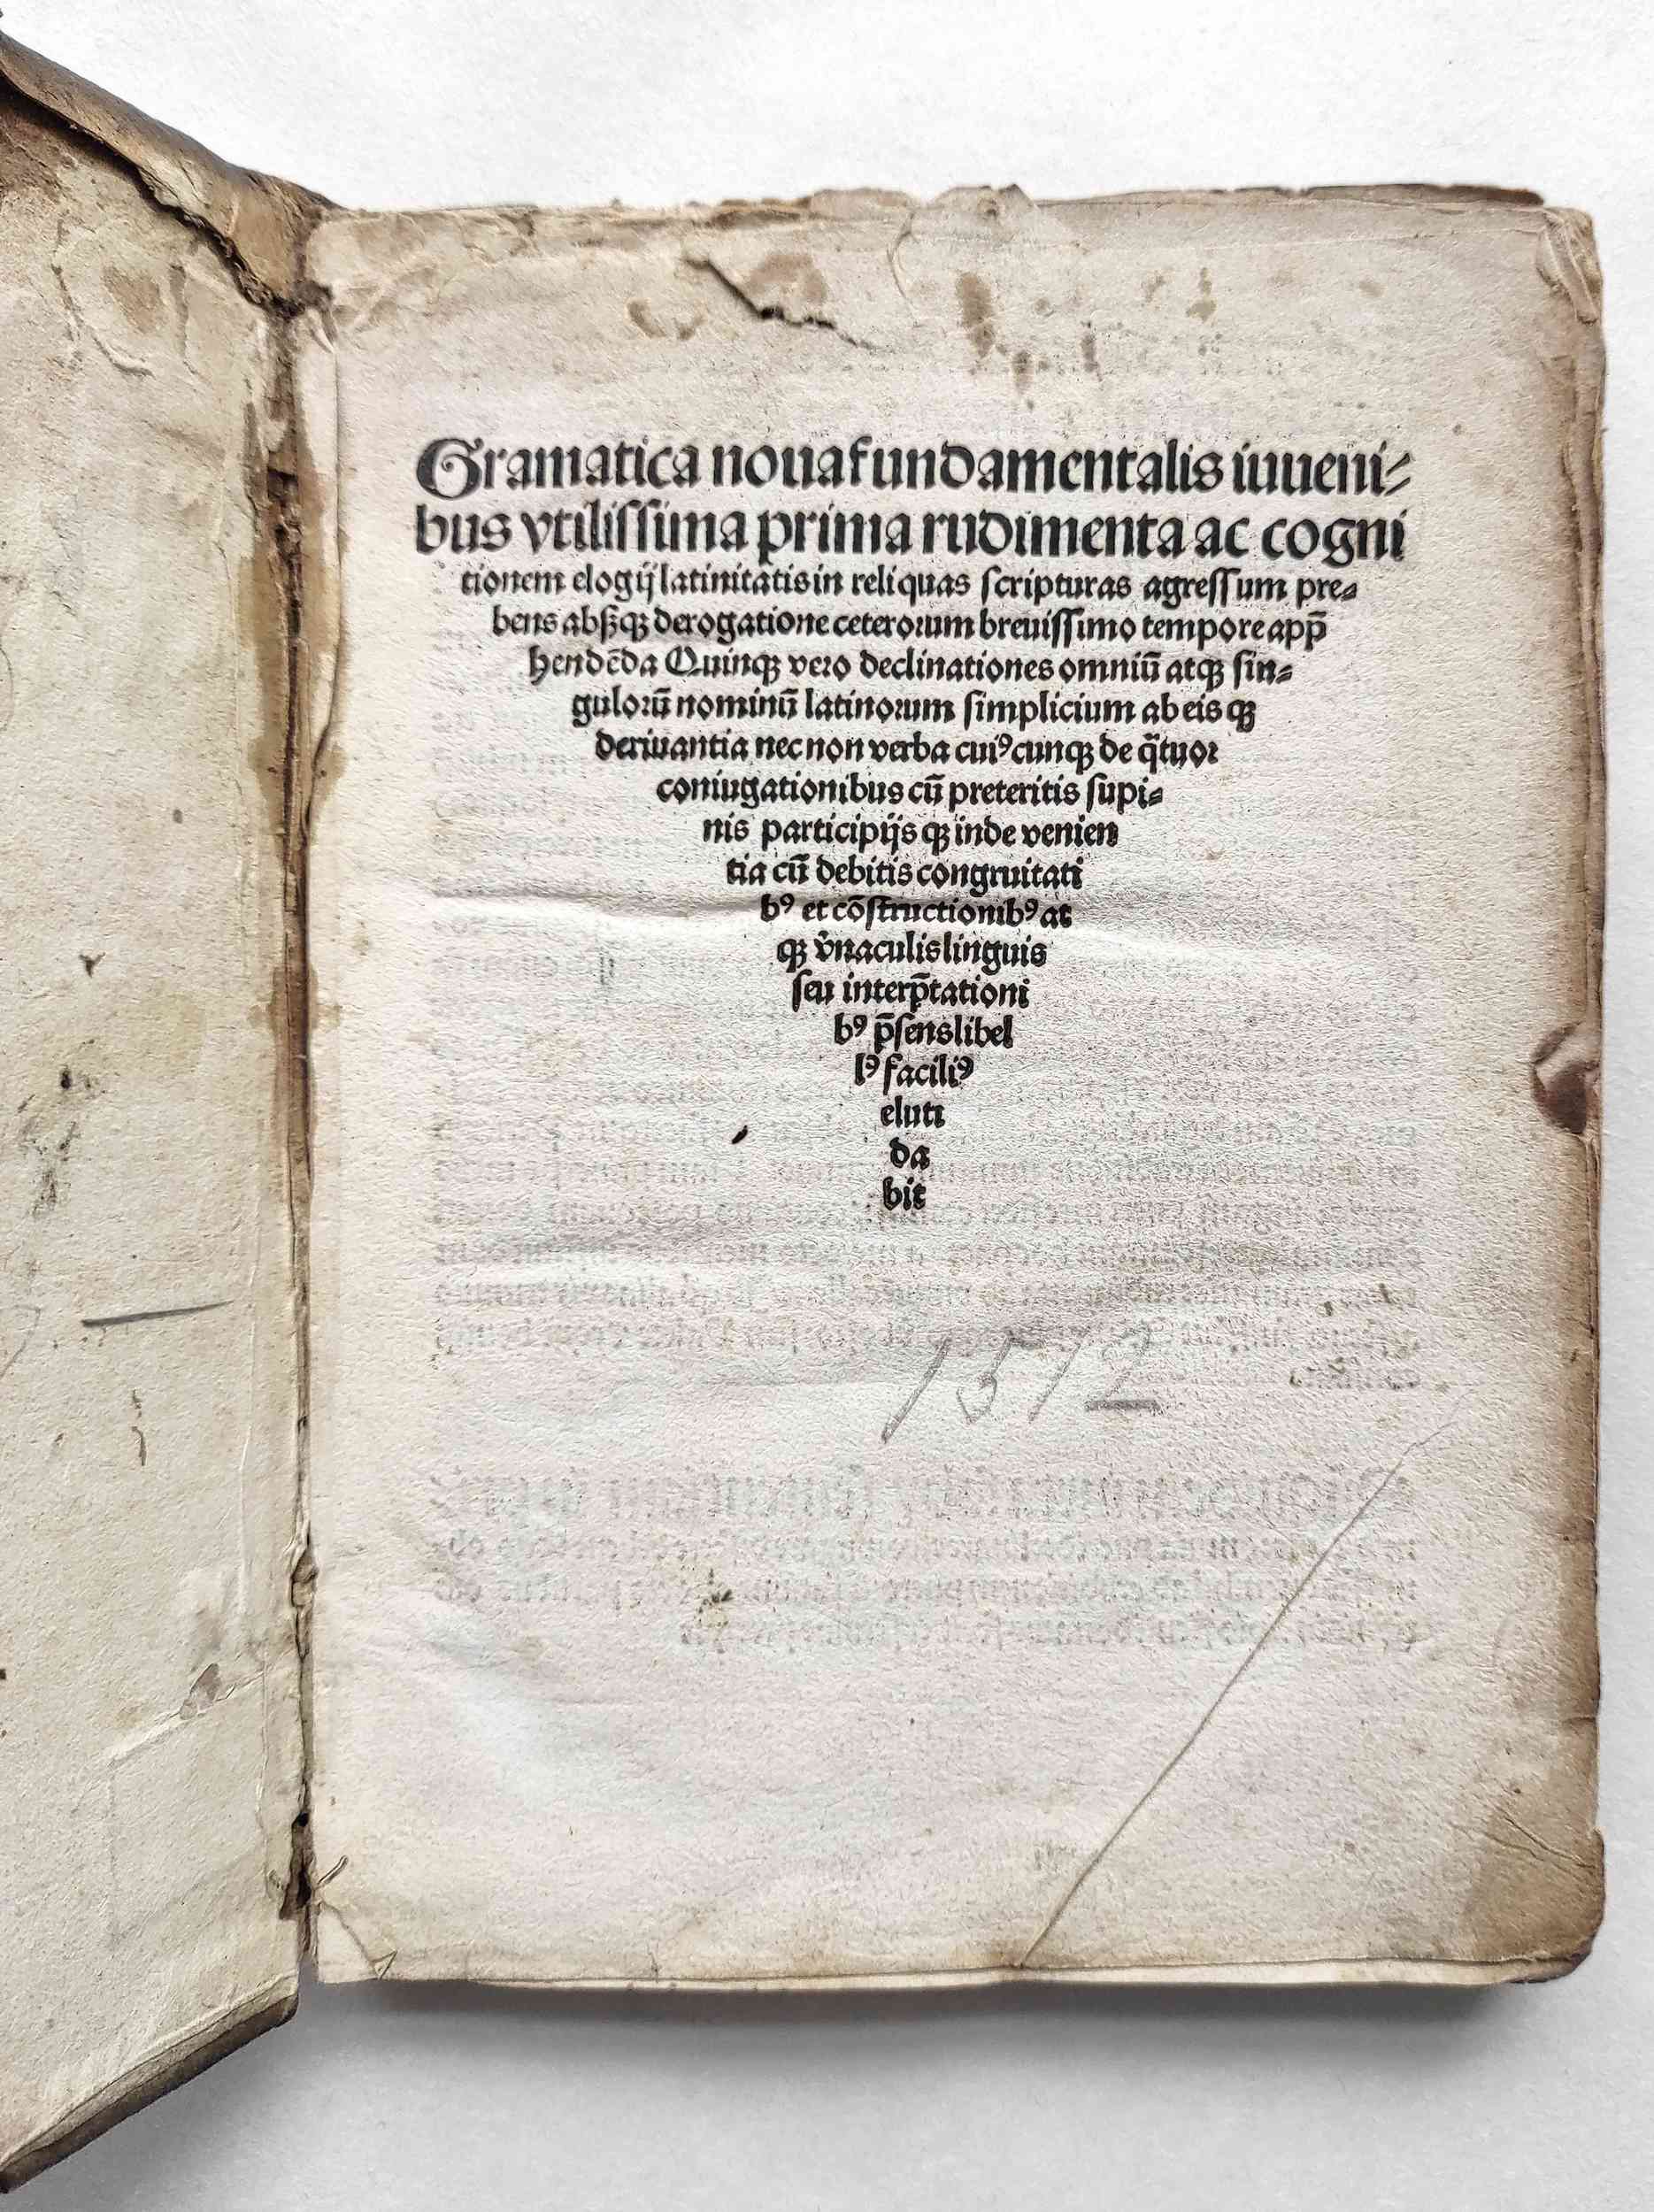 Gramatica noua fundamentalis iuueni⸗
bus vtilissima prima rudimenta ac cogni
tionem elogij latinitatis in reliquas scripturas agressum pre⸗
bens absꝙ derogatione ceterorum breuissimo tempore app̄
hendēda Quinꝙ vero declinationes omniū atꝙ sin⸗
gulorū nominū latinorum simplicium ab eis ꝙ
deriuantia nec non verba cuiꝰcunꝙ de q̄tuor
coniugationibus cū preteritis supi⸗
nis participijs ꝙ inde venien
tia cū debitis congruitati
bꝰ et cōstructionibꝰ at
ꝙ v̓naculis linguis
seu interp̄tationi
bꝰ p̄sens libel
lꝰ faciliꝰ
eluti
da
bit
1512